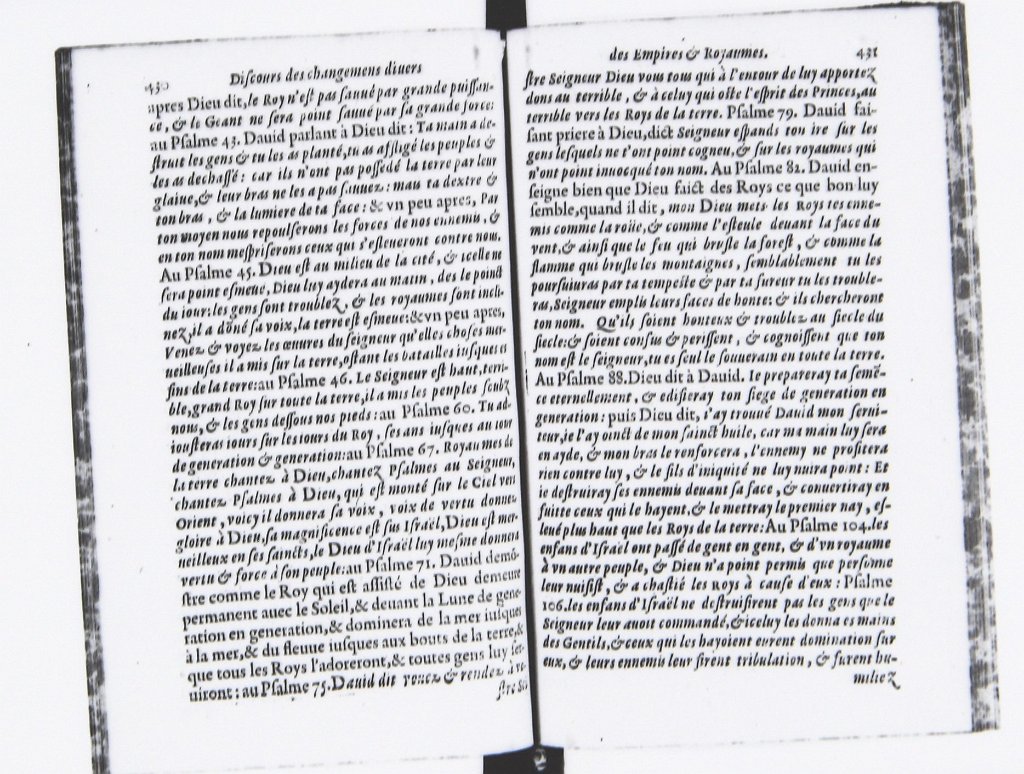 430
Discours des changemens diuers
apres Dieu dit, le Roy n'est pas sauué par grande puissan-
ce, & le Geant ne sera point sauué par sa grande force:
au Psalme 43. Dauid parlant à Dieu dit: Ta main a de-
struit les gens & tu les as planté, tu as affligé les peuples &
les as dechassé: car ils n'ont pas possedé la terre par leur
glaiue, & leur bras ne les a pas sauuez: mais ta dextre &
ton bras, & la lumiere de ta face: & vn peu apres, Par
ton moyen nous repoulserons les forces de nos ennemis, &
en ton nom mespriserons ceux qui s'esleueront contre nous.
Au Psalme 45. Dieu est au milieu de la cité, & icelle ne
sera point esmeuë, Dieu luy aydera au matin, des le poinct
du iour: les gens sont troublez, & les royaumes sont incli-
nez, il a dõné sa voix, la terre est esmeue: & vn peu apres,
Venez & voyez les œuures du seigneur qu'elles choses mer-
ueilleuses il a mis sur la terre, ostant les batailles iusques es
fins de la terre: au Psalme 46. Le Seigneur est haut, terri-
ble, grand Roy sur toute la terre, il a mis les peuples soubz
nous, & les gens dessous nos pieds: au Psalme 60. Tu ad-
iousteras iours sur les iours du Roy, ses ans iusques au iour
de generation & generation: au Psalme 67. Royaumes de
la terre chantez à Dieu, chantez Psalmes au Seigneur,
chantez Psalmes à Dieu, qui est monté sur le Ciel vers
Orient, voicy il donnera sa voix, voix de vertu donnez
gloire à Dieu, sa magnificence est sus Israël, Dieu est mer-
ueilleux en ses saincts, le Dieu d'Israël luy mesme donnera
vertu & force à son peuple: au Psalme 71. Dauid demõ-
stre comme le Roy qui est assisté de Dieu demeure
permanent auec le Soleil, & deuant la Lune de gene-
ration en generation, & dominera de la mer iusques
à la mer, & du fleuue iusques aux bouts de la terre, &
que tous les Roys l'adoreront, & toutes gens luy ser-
uiront: au Psalme 75. Dauid dit vouez & rendez à vo-
stre Sei
des Empires & Royaumes.
431
stre Seigneur Dieu vous tous qui à l'entour de luy apportez
dons au terrible, & à celuy qui oste l'esprit des Princes, au
terrible vers les Roys de la terre. Psalme 79. Dauid fai-
sant priere à Dieu, dict Seigneur espands ton ire sur les
gens lesquels ne t'ont point cogneu, & sur les royaumes qui
n'ont point inuocqué ton nom. Au Psalme 82. Dauid en-
seigne bien que Dieu faict des Roys ce que bon luy
semble, quand il dit, mon Dieu mets les Roys tes enne-
mis comme la roüe, & comme l'esteule deuant la face du
vent, & ainsi que le feu qui brusle la forest, & comme la
flamme qui brusle les montaignes, semblablement tu les
poursuiuras par ta tempeste & par ta fureur tu les trouble-
ras, Seigneur emplis leurs faces de honte: & ils chercheront
ton nom. Qu'ils soient honteux & troublez au siecle du
siecle: & soient confus & perissent, & cognoissent que ton
nom est le seigneur, tu es seul le souuerain en toute la terre.
Au Psalme 88. Dieu dit à Dauid. Ie prepareray ta semẽ-
ce eternellement, & edifieray ton siege de generation en
generation: puis Dieu dit, i'ay trouué Dauid mon serui-
teur, ie l'ay oinct de mon sainct huile, car ma main luy sera
en ayde, & mon bras le renforcera, l'ennemy ne profitera
rien contre luy, & le fils d'iniquité ne luy nuira point: Et
ie destruiray ses ennemis deuant sa face, & conuertiray en
fuitte ceux qui le hayent, & le mettray le premier nay, es-
leué plus haut que les Roys de la terre: Au Psalme 104. les
enfans d'Israël ont passé de gent en gent, & d'vn royaume
à vn autre peuple, & Dieu n'a point permis que personne
leur nuisist, & a chastié les Roys à cause d'eux: Psalme
106. les enfans d'Israël ne destruisirent pas les gens que le
Seigneur leur auoit commandé, & iceluy les donna es mains
des Gentils, & ceux qui les hayoient eurent domination sur
eux, & leurs ennemis leur firent tribulation, & furent hu-
miliez